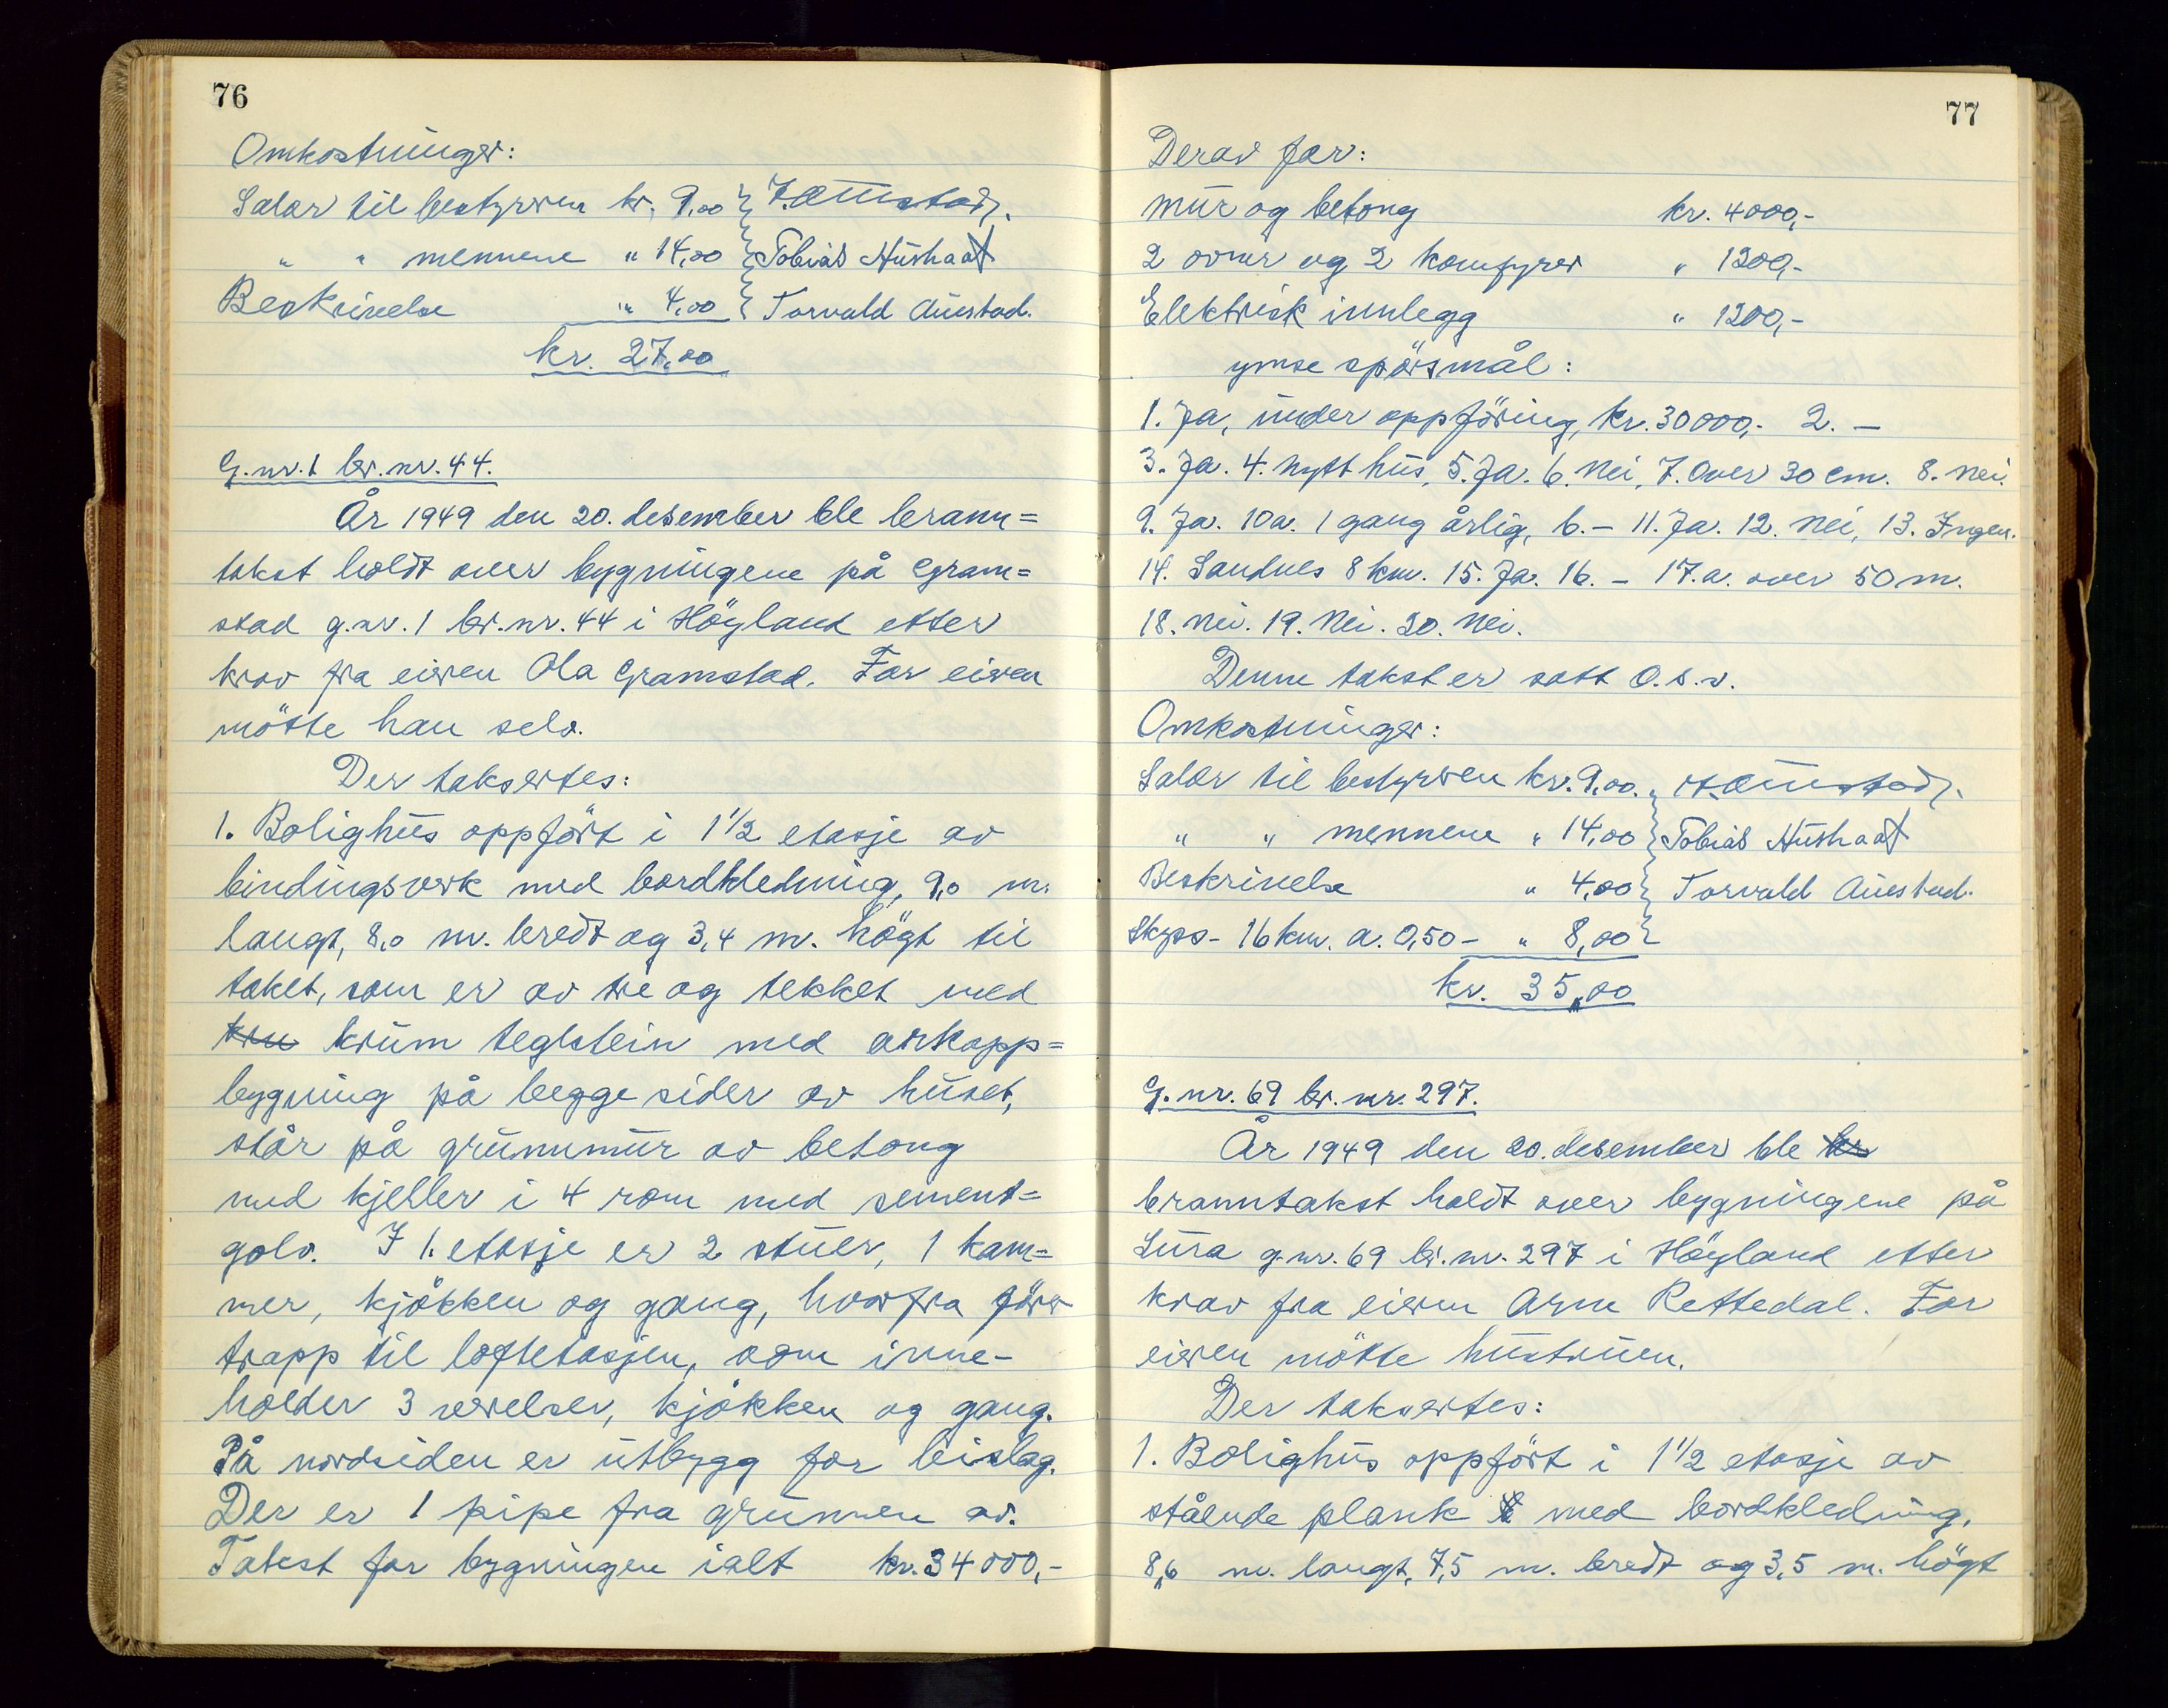 76
Omkostninger:
Salær til bestyreren kr. 9,00
" " mennene " 14,00 Tobias Aushaat
Beskrivelse " 4,00 Torvald Auestad.
kr. 27,00
G.nr. 1 br.nr. 44.
År 1949 den 20. desember ble brann=
takst holdt over bygningene på Gram=
stad g.nr. 1 br.nr. 44 i Höyland etter
krav fra eieren Ola Gramstad. For eieren
mötte han selv.
Der taksertes:
1. Bolighus oppfört i 1 1/2 etasje av
bindingsverk med bordkledning, 9,0 m.
langt, 8,0 m. bredt og 3,4 m. högt til
taket, som er av tre og tekket med
kru krum teglstein med arkopp=
bygning på begge sider av huset,
står på grunnmur av betong
med kjeller i 4 rom med sement=
golv. I 1. etasje er 2 stuer, 1 kam=
mer, kjökken og gang, hvorfra förer
trapp til loftetasjen, som inne-
holder 3 værelser, kjökken og gang.
På nordsiden er utbygg for bislag.
Der er 1 pipe fra grunnen av.
Takst for bygningen ialt kr. 34000,-
77
Derav for:
mur og betong kr. 4000,-
2 ovner og 2 komfyrer " 1200,-
Elektrisk innlegg " 1200,-
ymse spörsmål:
1. Ja, under oppföring, kr. 30000,- 2. –
3. Ja. 4. Nytt hus, 5. Ja. 6. Nei, 7. Over 30 cm. 8. Nei.
9. Ja. 10a. 1 gang årlig, b. – 11. Ja. 12. Nei, 13. Ingen.
14. Sandnes 8 km. 15. Ja. 16. – 17.a. over 50 m.
18. Nei. 19. Nei. 20. Nei.
Denne takst er satt o.s.v.
Omkostninger:
Salær til bestyreren kr. 9,00.
" " mennene " 14,00 Tobias Aushaat
Beskrivelse " 4,00 Torvald Auestad.
Skyss- 16 km. a. 0,50 – " 8,00
kr. 35,00
G.nr. 69 br.nr. 297.
År 1949 den 20. desember ble br
branntakst holdt over bygningene på
Lura g.nr. 69 br.nr. 297 i Höyland etter
krav fra eieren Arne Rettedal. For
eieren mötte hustruen.
Der taksertes:
1. Bolighus oppfört i 1 1/2 etasje av
stående plank med bordkledning,
8,6 m. langt, 7,5 m. bredt og 3,5 m. högt